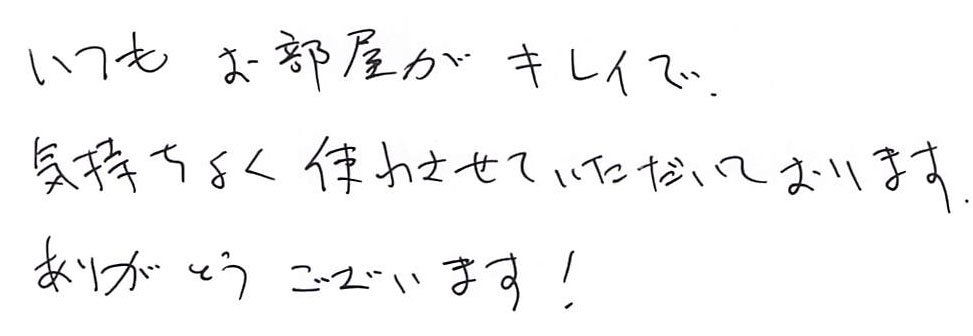 いつも お部屋が キレイで.
気持ちよく 使わさせていただいております.
ありがとう ございます!